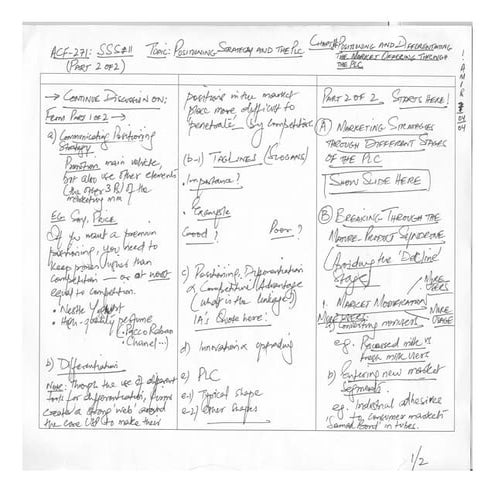 ACF-271: SSS#11
(PART 2 OF 2)
TOPIC: POSITIONING STRATEGY AND THE PLC
POSITIONING AND DIFFERENTIATING
THE MARKET OFFERING THROUGH
THE PLC
→ CONTINUE DISCUSSION ON:
FROM PART 1 OF 2 →
a) Communicating Positioning
Strategy
Promotion main vehicle,
but also use other elements
(the other 3 P's) of the
marketing mix
EG: Say, Price
If you want a premium
positioning, you need to
keep prices higher than
competition — or at worst
equal to competition.
• Nestle Yoghurt
• High-quality perfume
(Paco Raban
Chanel...)
b) Differentiation
Note: Through the use of different
tools for differentiation, firms
create a strong 'web' around
the core to make their
positions in the market
place more difficult to
"penetrate" by competitors
(b-1) TAGLINES (SLOGANS)
• Importance?
• Example
Good? Poor?
c) Positioning, Differentiation
& Competitive Advantage
(what is the linkage?)
IA's Quote here!
d) Innovation & upgrading
e) PLC
e-1) Typical shape
e-2) Other shapes
PART 2 OF 2 STARTS HERE!
(A) MARKETING STRATEGIES
THROUGH DIFFERENT STAGES
OF THE PLC
SHOW SLIDE HERE
(B) BREAKING-THROUGH THE
MATURE-PRODUCT SYNDROME
(Avoiding the 'Decline'
stage)
1. MARKET MODIFICATION
MORE
USERS
MORE
USAGE
MORE USERS:
a) Converting nonusers
eg. Processed milk vs
fresh milk users
b) Entering new market
segments.
eg. Industrial adhesives
to consumer market
in tubes.
1/2